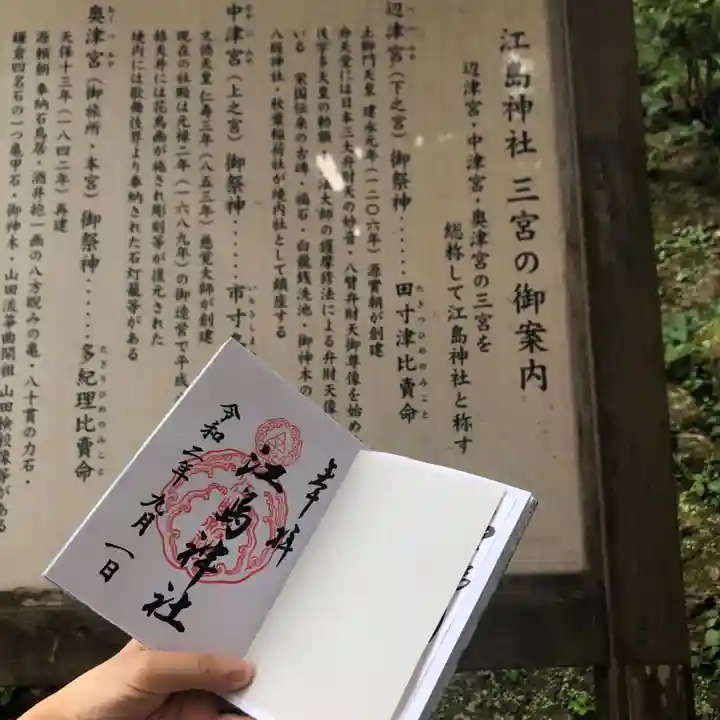 江島神社 三宮の御案内
辺津宮・中津宮・奥津宮の三宮を
総称して江島神社と称す
辺津宮（下之宮）御祭神・・・・・・田寸津比賣命
たきつひめのみこと
土御門天皇 建永元年（一二〇六年）源實朝が創建
弁天堂には日本三大弁財天の妙音・八臂弁財天御尊像を始め
後宇多天皇の勅額・
法大師の護摩修法による弁財天像
いる 家国伝来の古碑・福石・白龍銭洗池・御神木の
八坂神社・秋葉稲荷社が境内社として鎮座する
中津宮（上之宮）御祭神・・・・・・市寸
なかつみや
いちきしま
文徳天皇 仁寿三年（八五三年）慈覚大師が創建
現在の社殿は元禄二年（一六八九年）の御造営で平成
格天井には花鳥画が施され彫刻等が復元された
境内には歌舞伎界より奉納された石灯籠等がある
奥津宮（御旅所・本宮）御祭神・・・・・・多紀理比賣命
おくつみや
たきりひめのみこと
天保十三年（一八四二年）再建
源頼朝 奉納石鳥居・酒井抱一画の八方睨みの亀・八十貫の力石・
鎌倉四名石の一つ亀甲石・御神木・山田流箏曲開祖 山田検校像等がある
奉拝
江島神社
令和二年九月一日